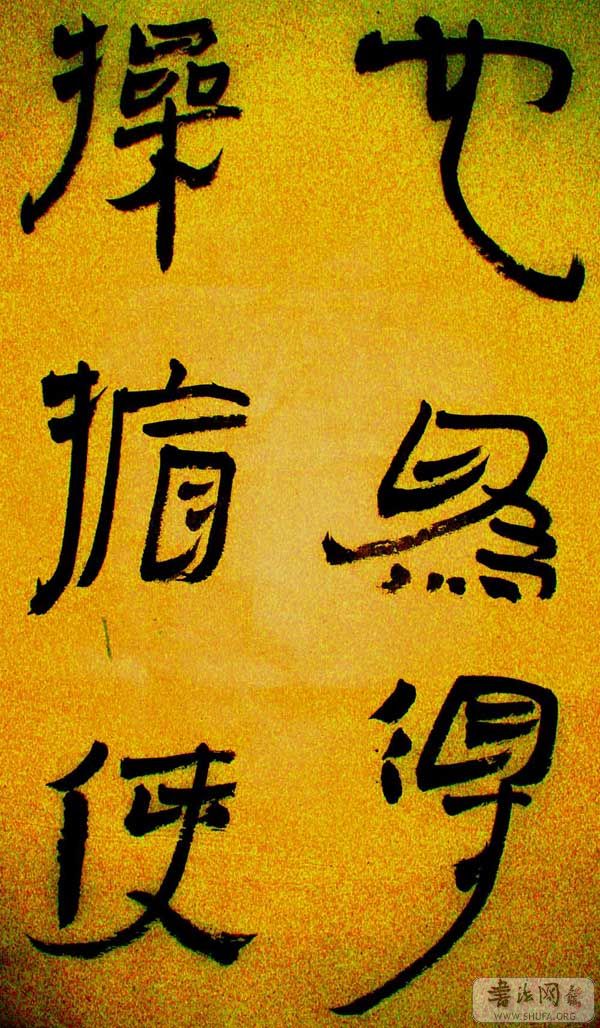 也烏得
操揗使
書法網
WWW.SHUFA.ORG